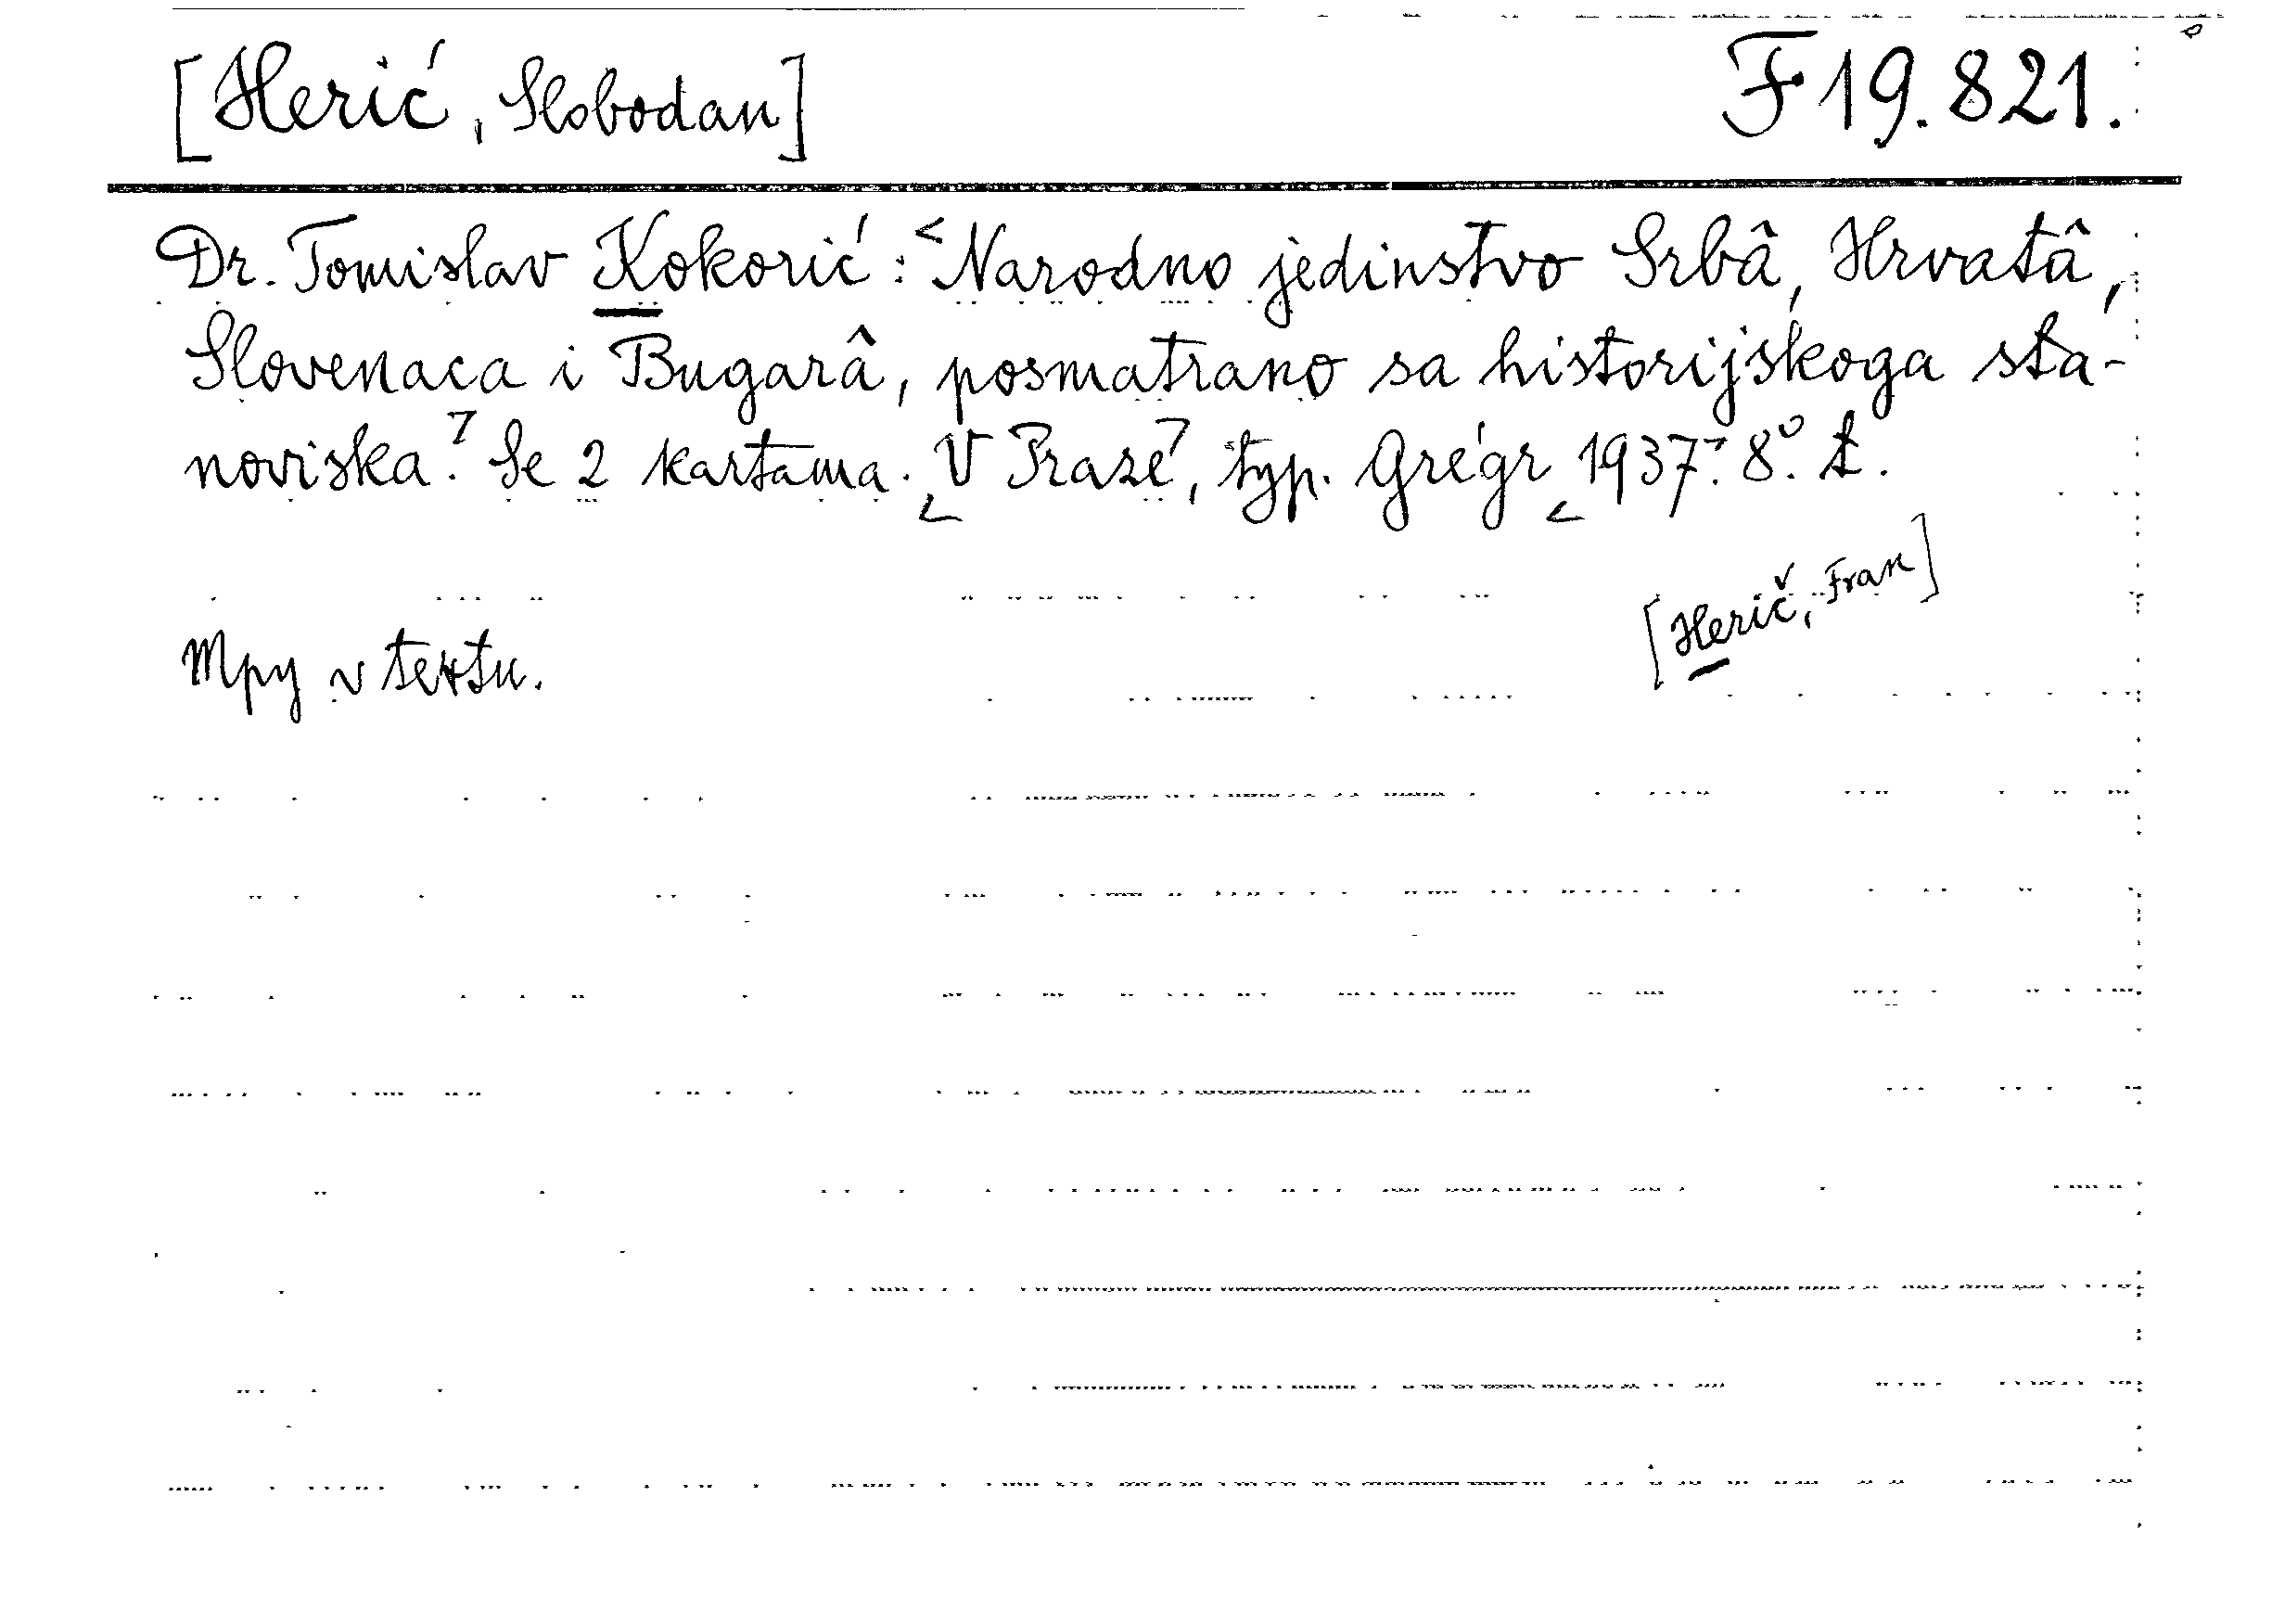 [Herić, Slobodan] F 19.821.
Dr. Tomislav Kokorić: <Narodno jedinstvo Srbâ, Hrvatâ,
Slovenaca i Bugarâ, posmatrano sa historijskoga sta-
noviska.> Se 2 kartama. <V Praze>, typ. Grégr <1937>. 8°.
[Herič, Fran]
Mpy v textu.